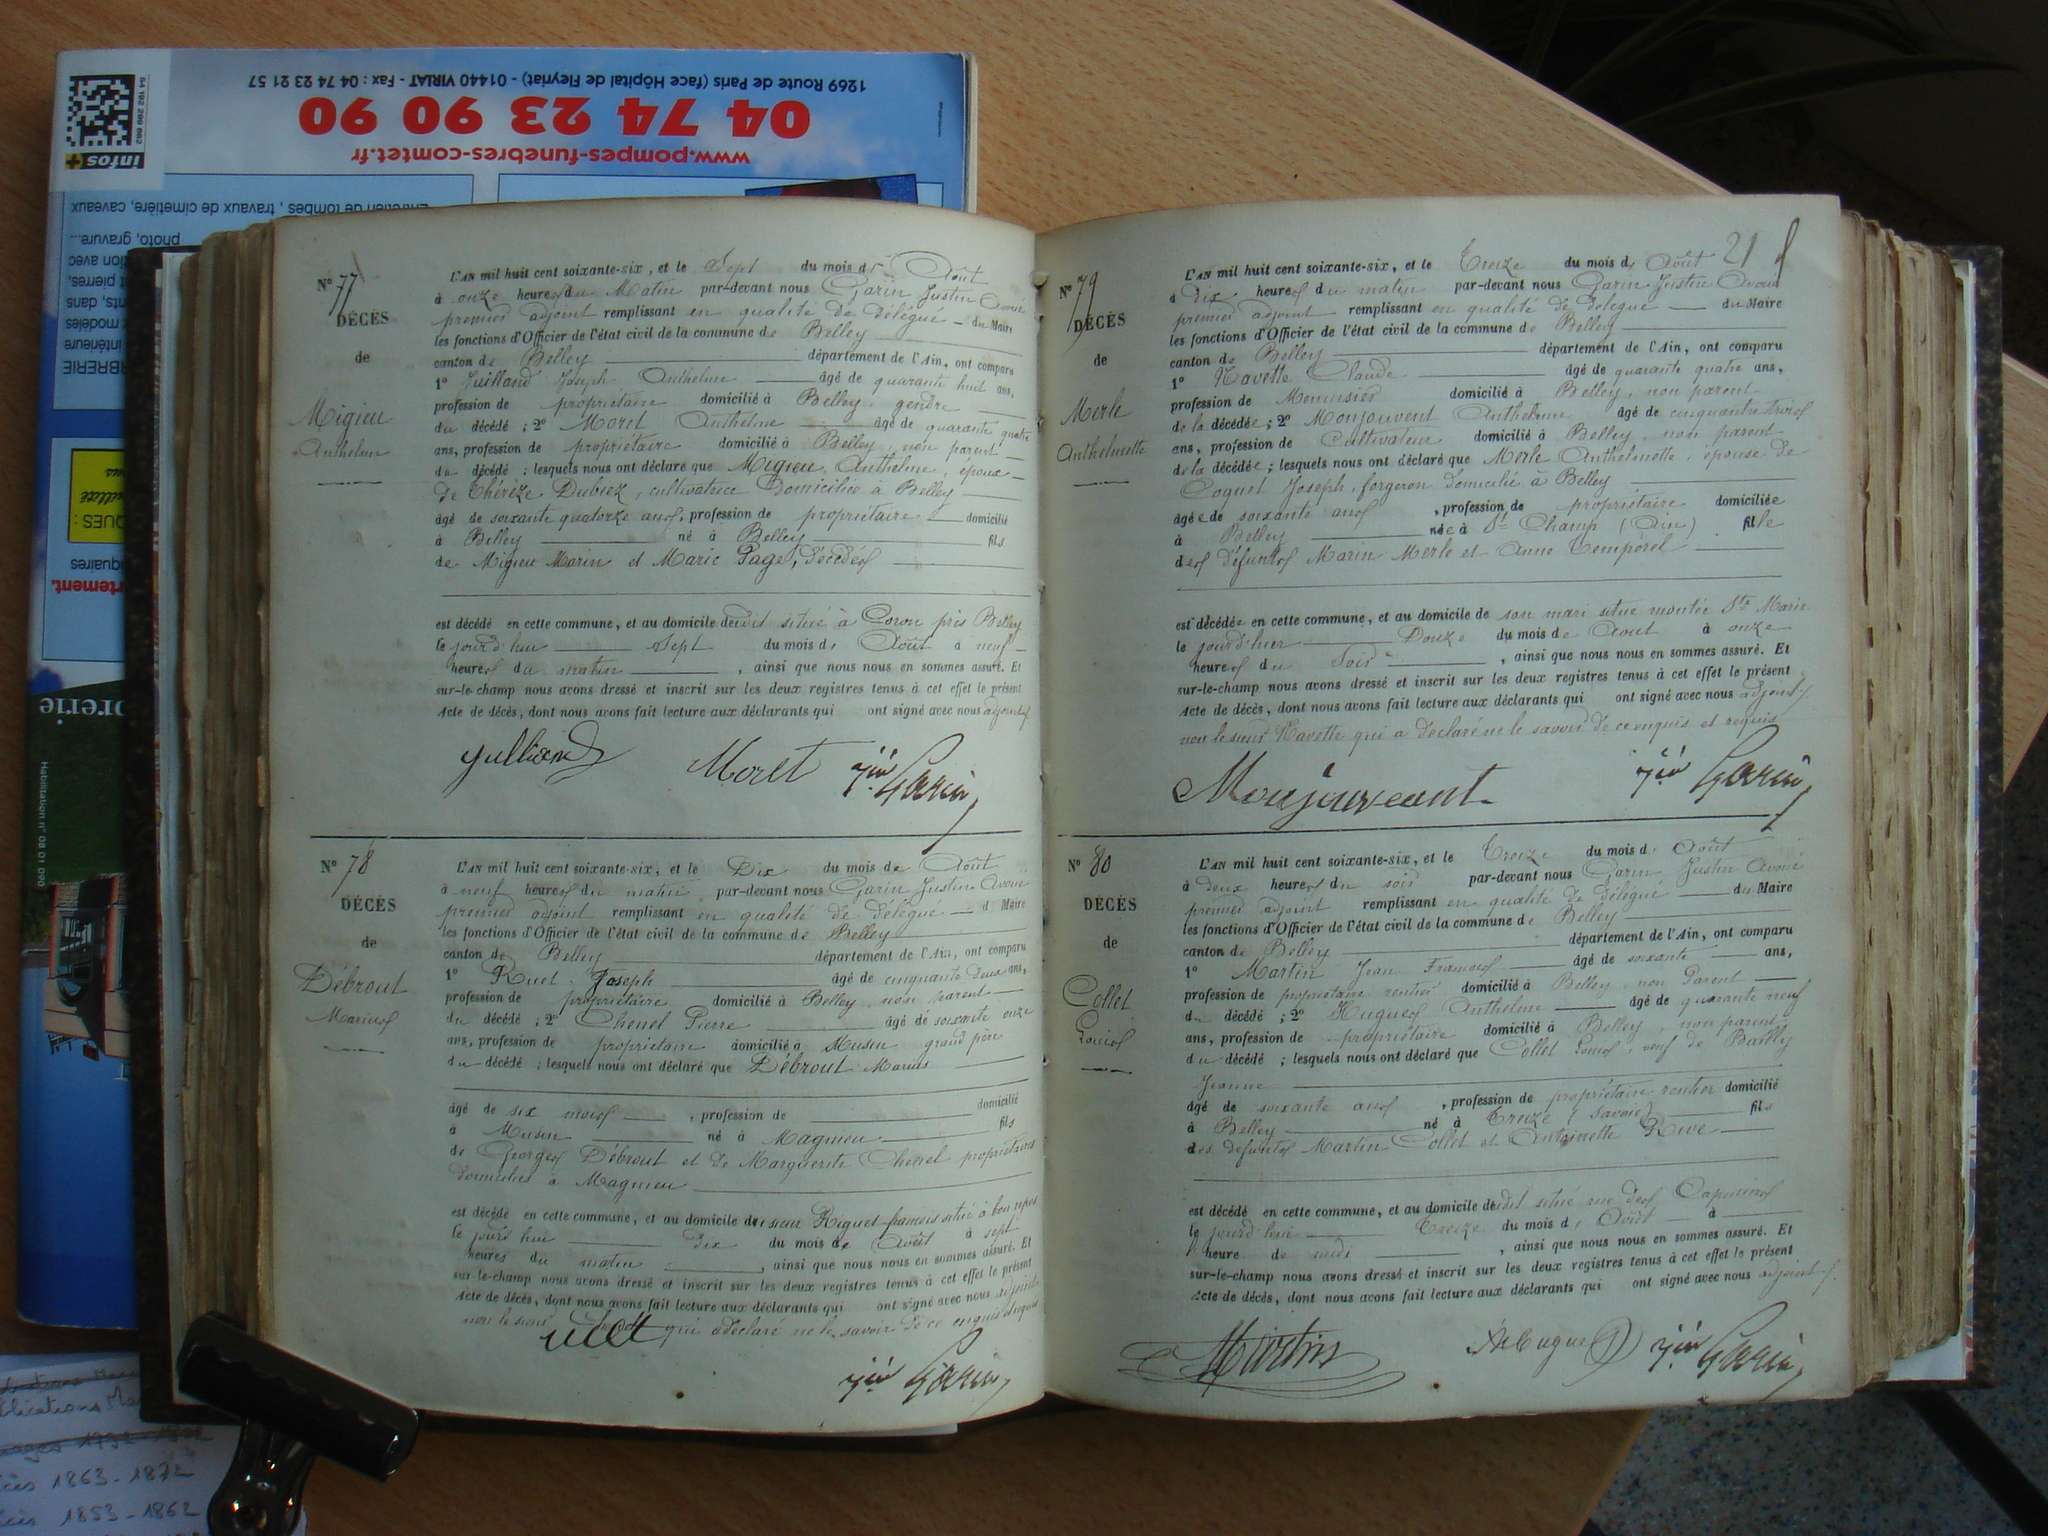 1269 Route de Paris (face Hôpital de Fleyriat) - 01440 VIRIAT - Fax : 04 74 23 21 57
04 74 23 90 90
www.pompes-funebres-comtet.fr
04 192 299 662
infos+
Entretien de tombes, travaux de cimetière, caveaux
photo, gravure...
Habilitation n° 08 01 090
N° 77
DÉCÈS
de
Migieu
Anthelme
L'AN mil huit cent soixante-six, et le Sept du mois d' Août
à onze heures du Matin par-devant nous Garin Justin Avoué
premier adjoint remplissant en qualité de délégué — du Maire
les fonctions d'Officier de l'état civil de la commune de Belley
canton de Belley département de l'Ain, ont comparu
1° Juilland Joseph Anthelme âgé de quarante huit ans,
profession de propriétaire domicilié à Belley, gendre
du décédé ; 2° Moret Anthelme âgé de quarante quatre
ans, profession de propriétaire domicilié à Belley, non parent
du décédé ; lesquels nous ont déclaré que Migieu Anthelme, époux
de Thérèze Dubiez, cultivatrice domiciliée à Belley
âgé de soixante quatorze ans, profession de propriétaire domicilié
à Belley né à Belley fils
de Migieu Marin et Marie Page, décédés
est décédé en cette commune, et au domicile dudit situé à Coron près Belley
le jourd'hui Sept du mois d' Août à neuf
heures du matin , ainsi que nous nous en sommes assuré. Et
sur-le-champ nous avons dressé et inscrit sur les deux registres tenus à cet effet le présent
Acte de décès, dont nous avons fait lecture aux déclarants qui ont signé avec nous adjoint
Moret Jin Garin
N° 78
DÉCÈS
de
Débrout
Marius
L'AN mil huit cent soixante-six, et le Dix du mois de Août
à neuf heures du matin par-devant nous Garin Justin Avoué
premier adjoint remplissant en qualité de délégué — d Maire
les fonctions d'Officier de l'état civil de la commune de Belley
canton de Belley département de l'Ain, ont comparu
1° Ruet Joseph âgé de cinquante deux ans,
profession de propriétaire domicilié à Belley, non parent
du décédé ; 2° Chenel Pierre âgé de soixante onze
ans, profession de propriétaire domicilié à Musin grand père
du décédé ; lesquels nous ont déclaré que Débrout Marius
âgé de six mois , profession de domicilié
à Musin né à Magnieu fils
de Georges Débrout et de Marguerite Chenel propriétaires
domiciliés à Magnieu
est décédé en cette commune, et au domicile du sieur Riguet françois situé à bon repos
le jourd'hui dix du mois de Août à sept
heures du matin , ainsi que nous nous en sommes assuré. Et
sur-le-champ nous avons dressé et inscrit sur les deux registres tenus à cet effet le présent
Acte de décès, dont nous avons fait lecture aux déclarants qui ont signé avec nous adjoint
non le sieur qui a déclaré ne le savoir de ce enquis et requis
Jin Garin
21
N° 79
DÉCÈS
de
Merle
Anthelmette
L'AN mil huit cent soixante-six, et le Treize du mois d' Août
à dix heures du matin par-devant nous Garin Justin Avoué
premier adjoint remplissant en qualité de délégué — du Maire
les fonctions d'Officier de l'état civil de la commune de Belley
canton de Belley département de l'Ain, ont comparu
1° Navette Claude âgé de quarante quatre ans,
profession de Menuisier domicilié à Belley, non parent
de la décédée ; 2° Monjouvent Anthelme âgé de cinquante trois
ans, profession de Cultivateur domicilié à Belley, non parent
de la décédée ; lesquels nous ont déclaré que Merle Anthelmette, épouse de
Coquet Joseph, forgeron domicilié à Belley
âgée de soixante ans , profession de propriétaire domiciliée
à Belley née à St Champ (Ain) fille
des défunts Marin Merle et Anne Temporel
est décédée en cette commune, et au domicile de son mari situé montée Ste Marie
le jourd'hier Douze du mois de Août à onze
heures du Soir , ainsi que nous nous en sommes assuré. Et
sur-le-champ nous avons dressé et inscrit sur les deux registres tenus à cet effet le présent
Acte de décès, dont nous avons fait lecture aux déclarants qui ont signé avec nous adjoint
non le sieur Navette qui a déclaré ne le savoir de ce enquis et requis
Monjouvent Jin Garin
N° 80
DÉCÈS
de
Collet
Louis
L'AN mil huit cent soixante-six, et le Treize du mois d' Août
à deux heures du soir par-devant nous Garin Justin Avoué
premier adjoint remplissant en qualité de délégué du Maire
les fonctions d'Officier de l'état civil de la commune de Belley
canton de Belley département de l'Ain, ont comparu
1° Martin Jean François âgé de soixante ans,
profession de propriétaire rentier domicilié à Belley, non Parent
du décédé ; 2° Hugues Anthelme âgé de quarante neuf
ans, profession de propriétaire domicilié à Belley non parent
du décédé ; lesquels nous ont déclaré que Collet Louis, veuf de Bailly
Jeanne
âgé de soixante ans , profession de propriétaire rentier domicilié
à Belley né à Treize (Savoie) fils
des défunts Martin Collet et Antoinette Rive
est décédé en cette commune, et au domicile dudit situé rue des Capucins
le jourd'hui Treize du mois d' Août à
heure de midi , ainsi que nous nous en sommes assuré. Et
sur-le-champ nous avons dressé et inscrit sur les deux registres tenus à cet effet le présent
Acte de décès, dont nous avons fait lecture aux déclarants qui ont signé avec nous adjoint
Martin Jin Garin
1863-1872
1853-1862